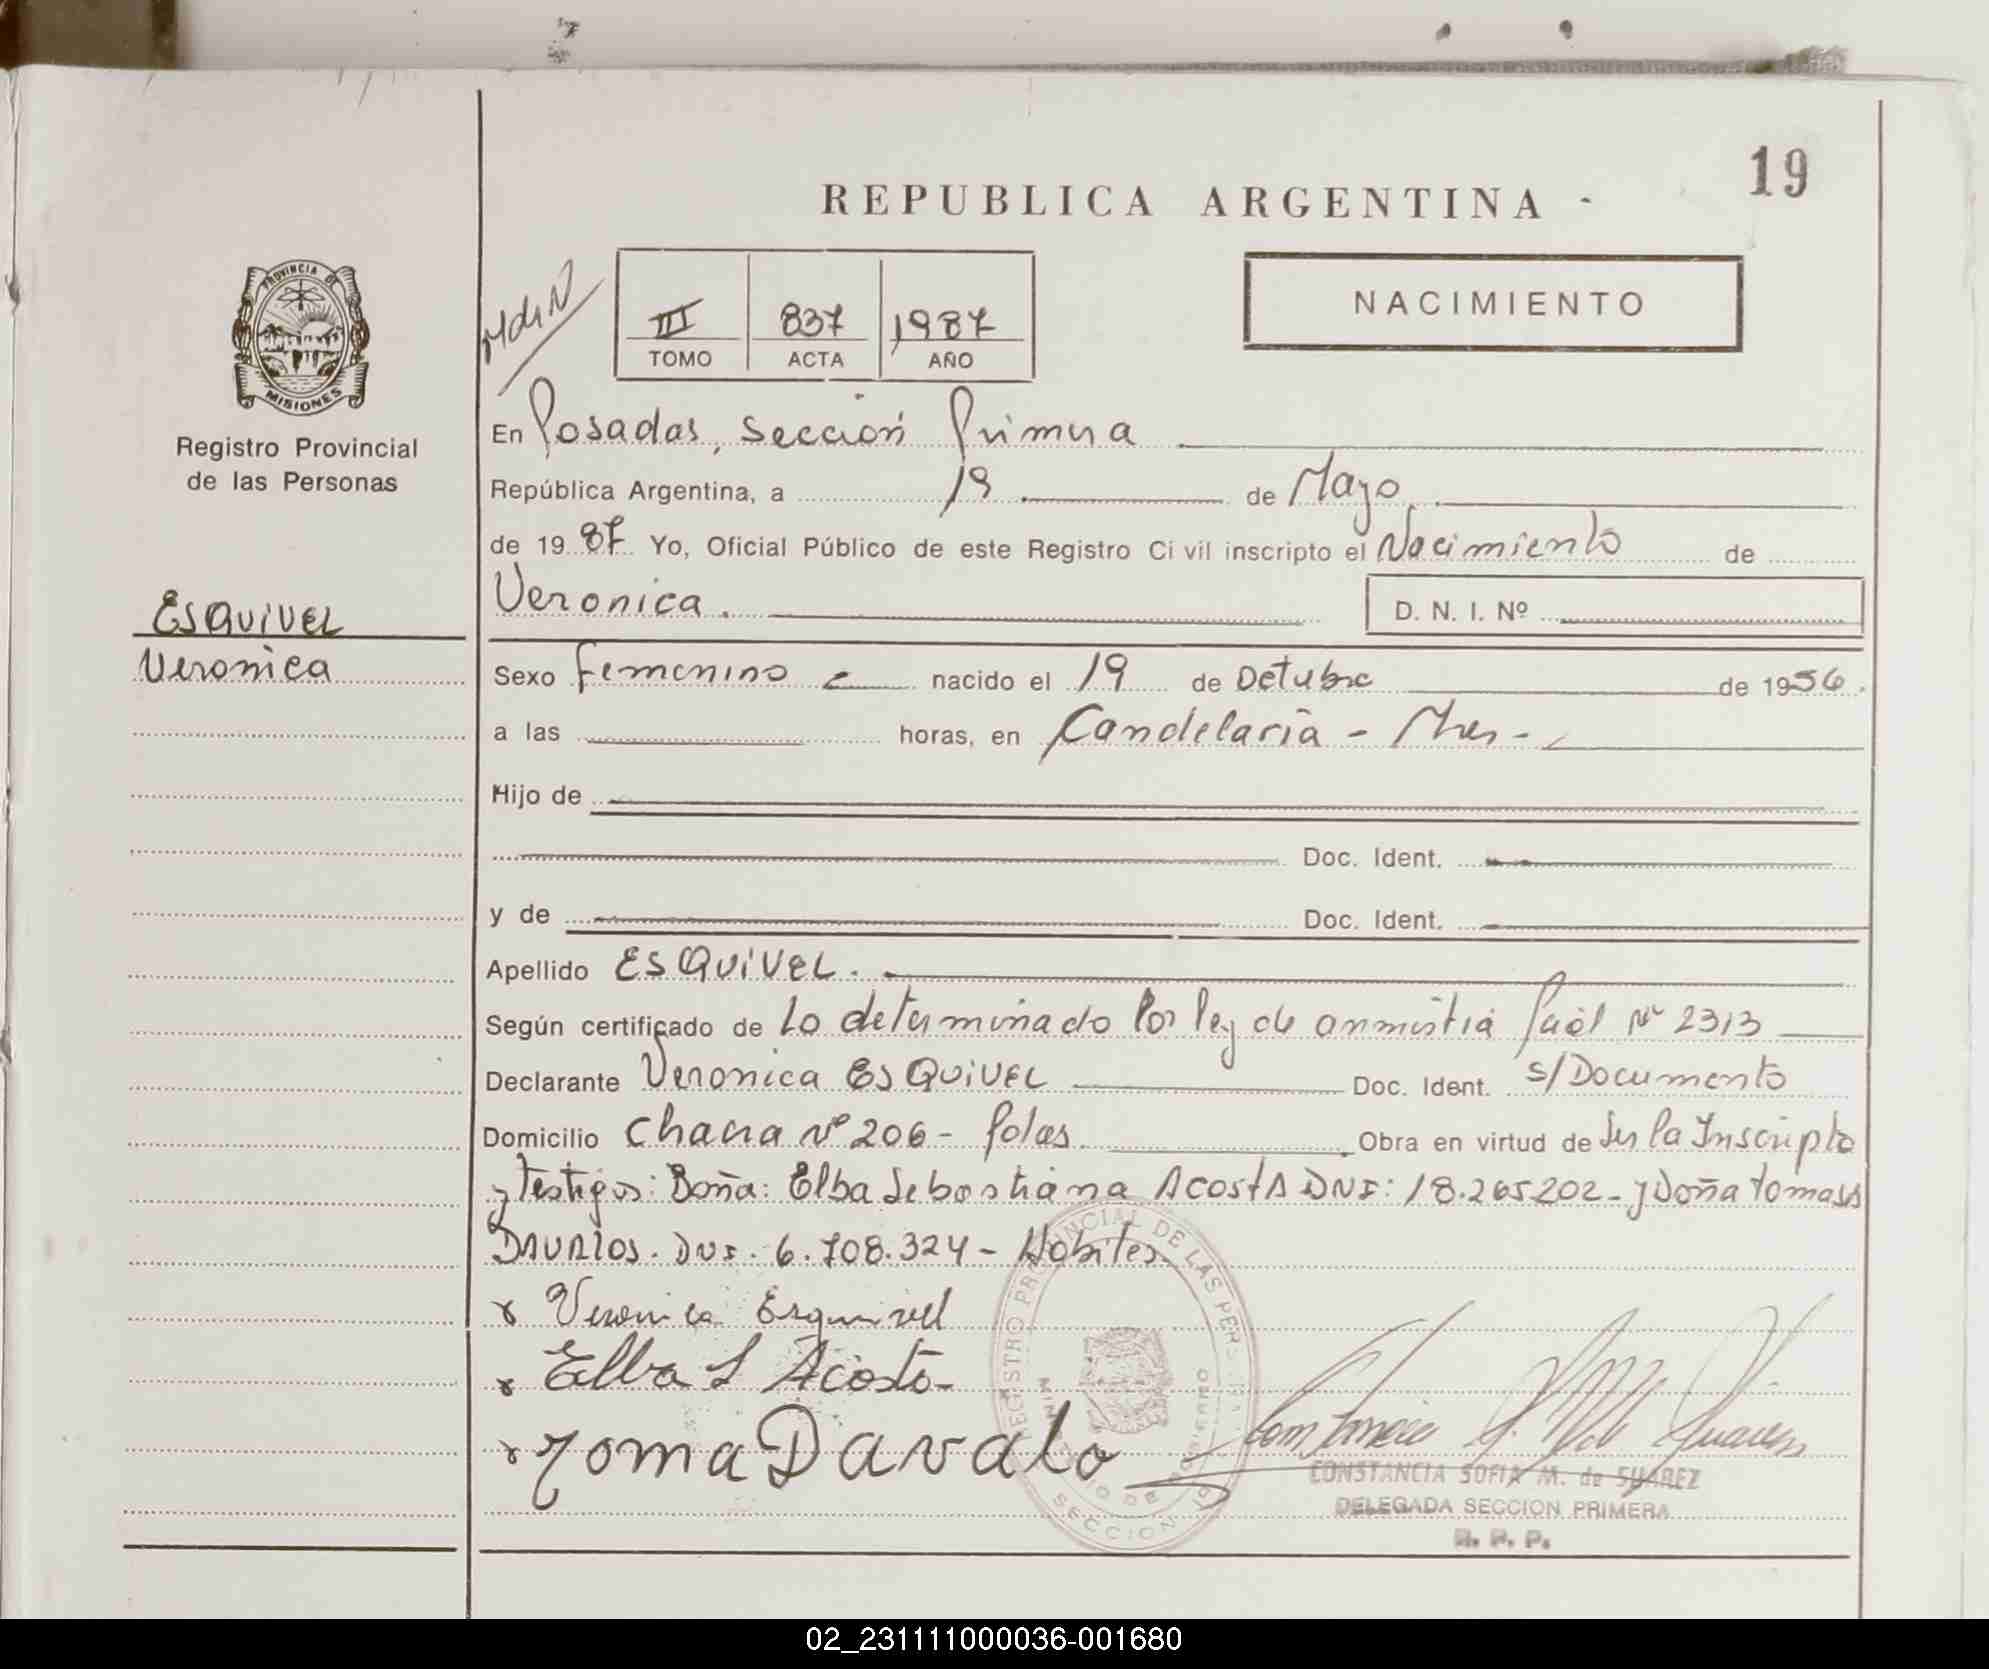 19
REPUBLICA ARGENTINA
NACIMIENTO
III 837 1987
TOMO ACTA AÑO
PROVINCIA DE
MISIONES
Registro Provincial
de las Personas
ESQUIVEL
Veronica
En Posadas, sección Primera
República Argentina, a 19 de Mayo
de 1987 Yo, Oficial Público de este Registro Civil inscripto el Nacimiento de
Veronica. D. N. I. Nº
Sexo Femenino nacido el 19 de Octubre de 1956.
a las horas, en Candelaria - Mnes -
Hijo de
Doc. Ident.
y de Doc. Ident.
Apellido ESQUIVEL.
Según certificado de Lo determinado Por ley de anmistia Pcial Nº 2313
Declarante Veronica ESQUIVEL Doc. Ident. s/Documento
Domicilio Chacra Nº 206 - Pdas. Obra en virtud de Ser la Inscripta
y Testigos: Doña: Elba Sebastiana ACOSTA DNI: 18.265.202 - y Doña Tomasa
DAVALOS. DNI. 6.708.324 - Habiles.
x Veronica Esquivel
x Elba S Acosta -
x Toma Davalo
REGISTRO PROVINCIAL DE LAS PERSONAS
MINISTERIO DE GOBIERNO
SECCION
CONSTANCIA SOFIA M. de SUAREZ
DELEGADA SECCION PRIMERA
R. P. P.
02_231111000036-001680